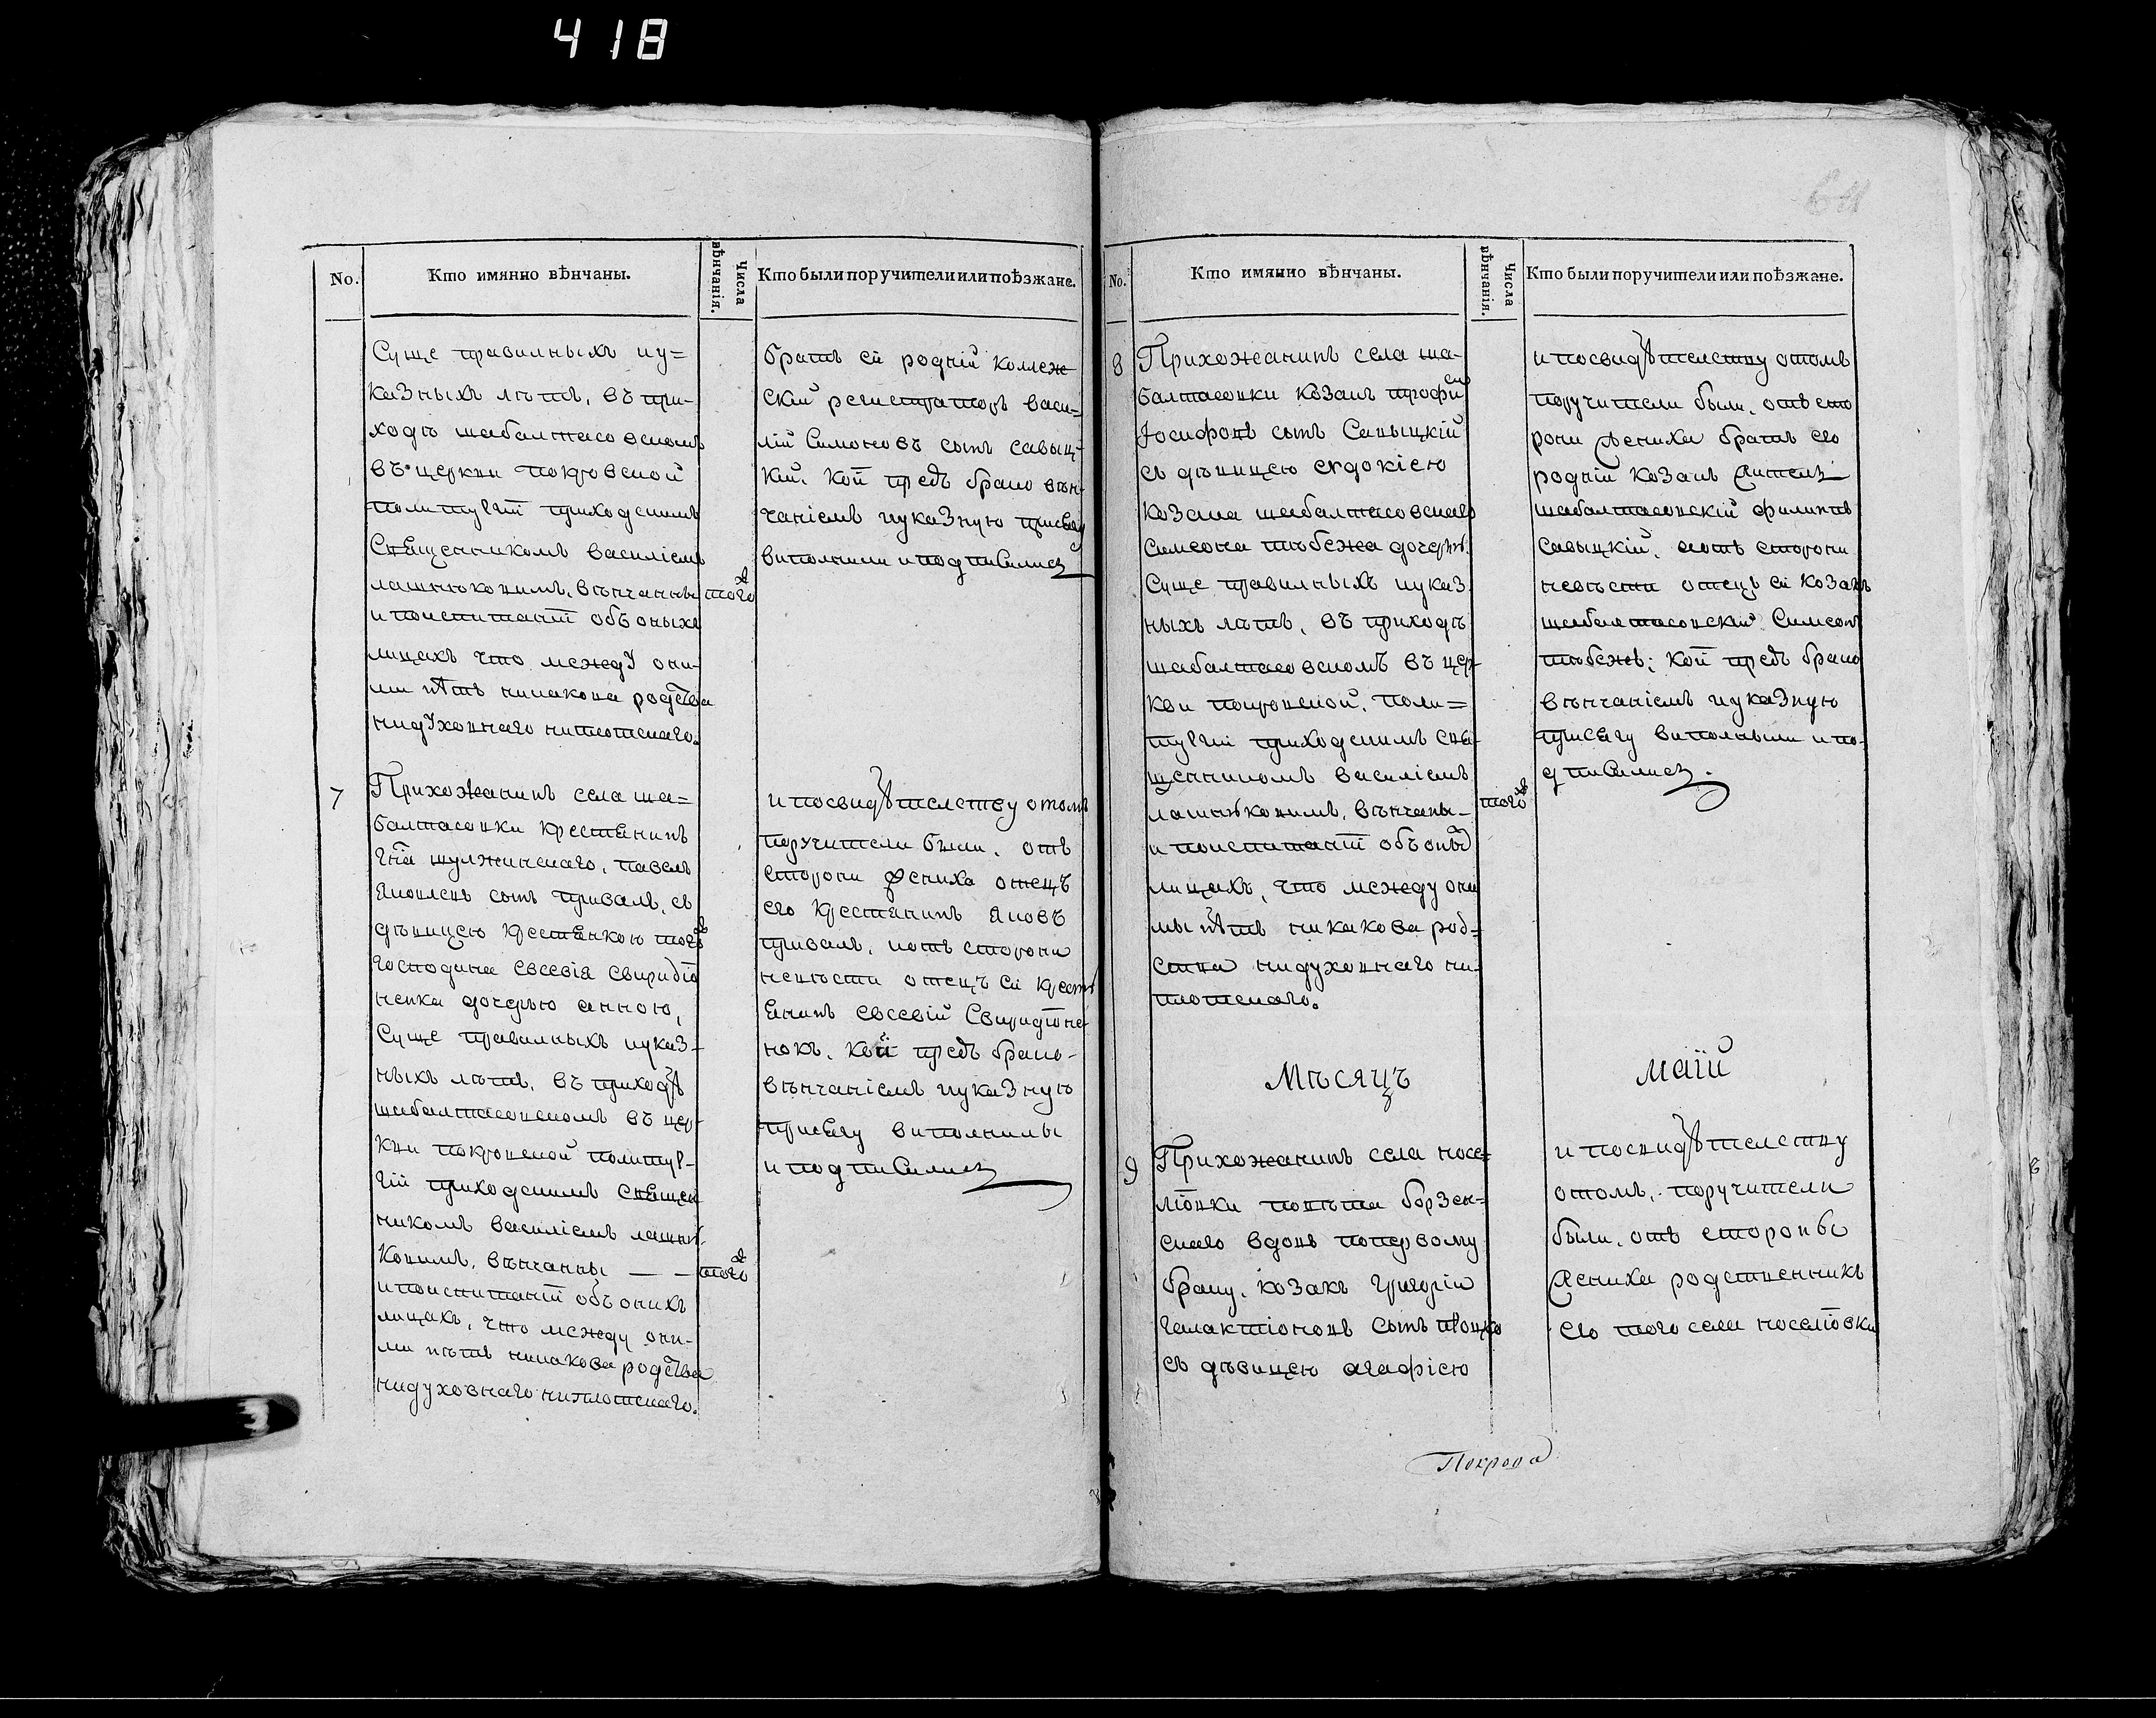 418
No.
Кто имянно вѣнчаны.
Числа вѣнчанія.
Кто были поручители или поѣзжане.
Суще правилныхъ иу=
казныхъ лѣтъ, въ при-
ходѣ шабалтасовскомъ
въ церкви покровской
политургіи приходскимъ
Священникомъ василіемъ
вѣнчанны
того
и поиспитаніи объ оныхъ
лицахъ что между они-
ми нѣтъ никакова родства
нидуховнаго ниплотскаго.
братъ ей родній колле
скій регистраторъ васи-
лій Симоновъ сынъ савыц-
кій, кои предъ брако вѣн-
чаніемъ иуказную присягу
виполнили и подписались
7
Прихожанинъ села ша=
балтасовки крестянинъ
гна шулжинскаго, павелъ
Яковлевъ сынъ привалъ, съ
дѣвицею крестянкою тогожъ
господина евсевія свиридіо
ненка дочерью анною,
Суще правилныхъ иуказ-
ныхъ лѣтъ, въ приходѣ
шабалтасовскомъ въ цер-
кви покровской политур-
гіи приходскимъ Священ
никомъ василіемъ
вѣнчанны — —
того
и поиспитаніи объ онихъ
лицахъ, что между они-
ми нѣтъ никакова родства
нидуховнаго ниплотскаго.
и посвидѣтелству о томъ
поручители были, отъ
стороны жениха отецъ
его крестянинъ Яковъ
привалъ, иотъ стороны
невѣсти отецъ ей крест
янинъ евсевій Свиридоне
нокъ, кои предъ брако-
вѣнчаніемъ иуказную
присягу виполнилы
и подписались
No.
Кто имянно вѣнчаны.
Числа вѣнчанія.
Кто были поручители или поѣзжане.
8
Прихожанинъ села ша-
балтасовки козакъ трофи
Іосифовъ сынъ Савыцкій
съ дѣвицею евдокіею
козака шабалтасовскаго
Симеона дочерю.
Суще правилныхъ иуказ
ныхъ лѣтъ, въ приходѣ
шабалтасовскомъ въ цер-
кви покровской, поли=
тургіи приходскимъ свя-
щенникомъ василіемъ
вѣнчаны-
того
и поиспитаніи объ оныхъ
лицахъ, что между они
мы нѣтъ никакова род=
ства нидуховнаго ни-
плотскаго.
и посвидѣтелству отомъ
поручители были, отъ сто
рони жениха братъ его
родній козакъ житель
шабалтасовскій филипъ
савыцкій, иотъ сторони
невѣсти отецъ ей козакъ
шабалтасовскій Симеонъ
кои предъ брако
вѣнчаніемъ иуказную
присягу виполныли и по-
дписались.
Мѣсяцъ
маій
9
Прихожанинъ села носе-
ліовки повѣта борзен-
скаго вдовъ поперьвому
браку, козакъ григорій
галактіоновъ сынъ
съ дѣвицею агафіею
и посвидѣтелству
отомъ, поручители
были, отъ стороны
жениха родственникъ
его того села носеліовки
Покрова